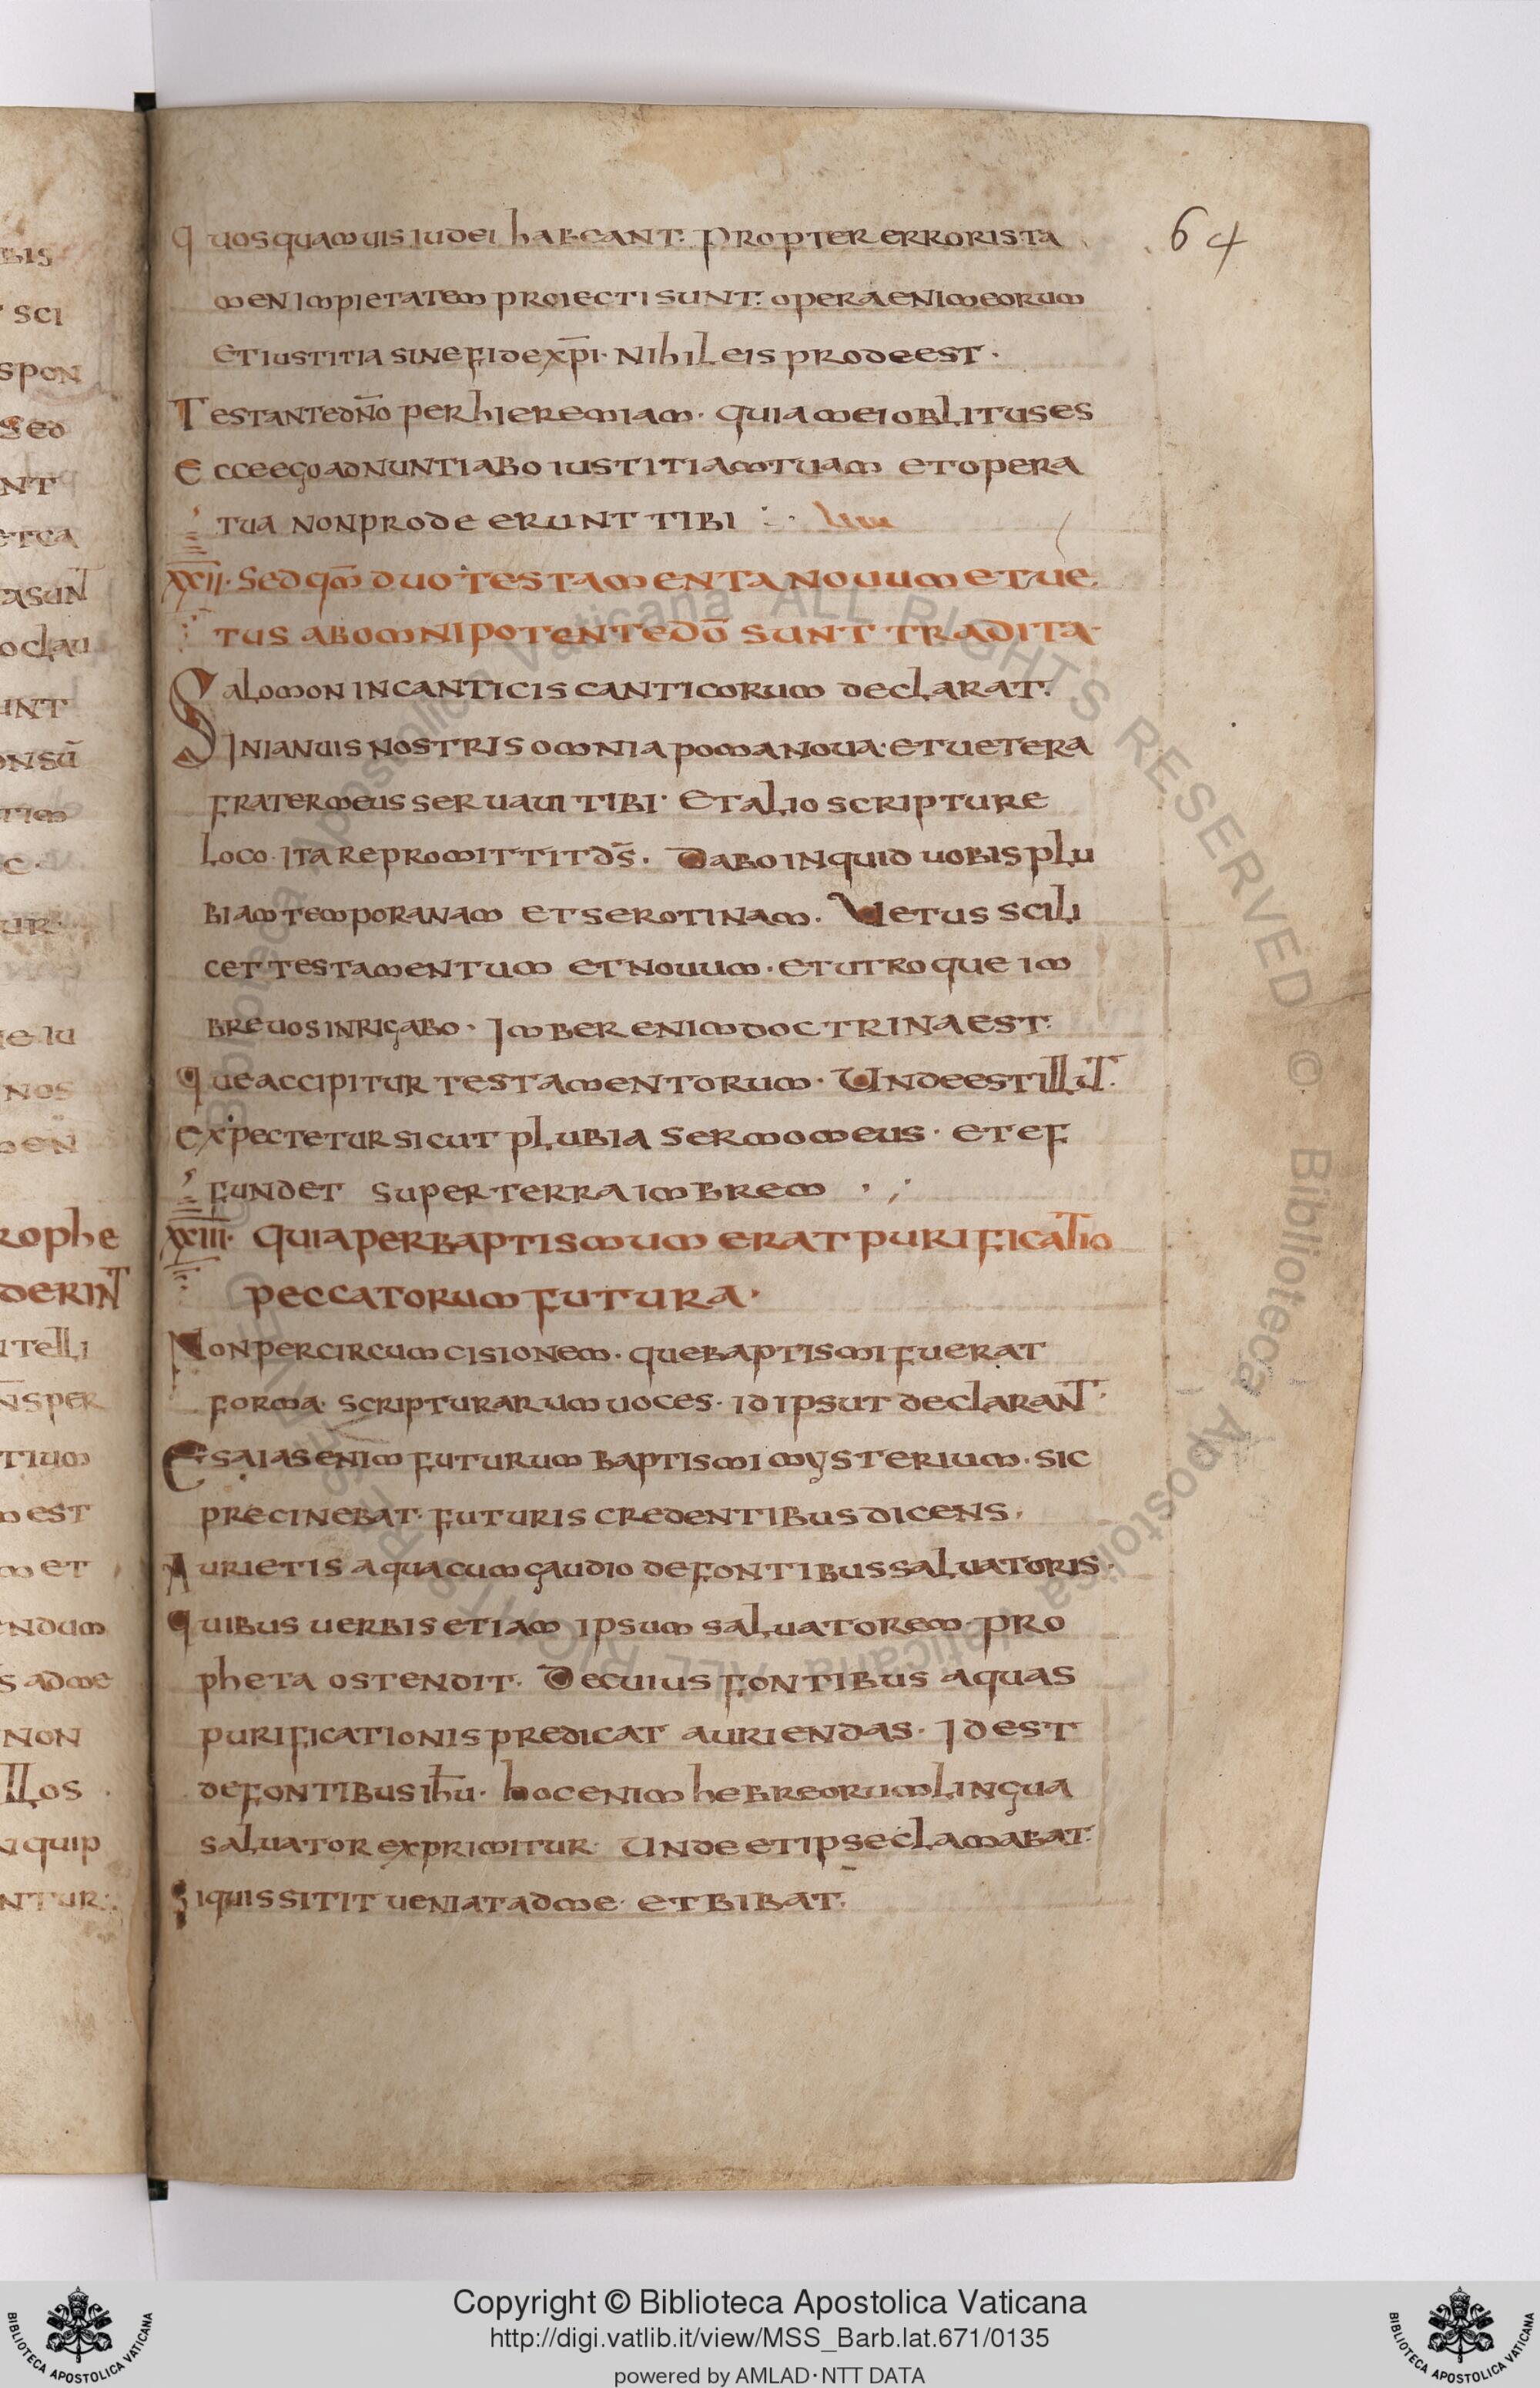 64
quos quamuis iudei habeant. propter erroris ta
men impietatem proiecti sunt. opera enim eorum
et iustitia sine fide xp̅i. nihil eis prodeest.
Testante dn̅o per hieremiam. quia mei oblitus es
ecce ego adnuntiabo iustitiam tuam et opera
tua non prode erunt tibi
XXII. Sed qm̅ duo testamenta nouum et ue
tus ab omnipotente do̅ sunt tradita.
Salomon in canticis canticorum declarat.
Inianuis nostris omnia poma noua. et uetera
frater meus seruaui tibi. et alio scripture
loco. ita repromittit ds̅. Dabo inquid uobis plu
biam temporanam et serotinam. Uetus scili
cet testamentum et nouum. et utroque im
bre uos inrigabo. Imber enim doctrina est.
que accipitur testamentorum. Unde est illut.
expectetur sicut plubia sermo meus. et ef
fundet super terra imbrem
XXIII. quia per baptismum erat purificatio
peccatorum futura.
Non per circumcisionem. que baptismi fuerat
forma. scripturarum uoces. id ipsut declarant.
Esaias enim futurum baptismi mysterium. sic
precinebat. futuris credentibus dicens.
Aurietis aqua cum gaudio de fontibus saluatoris.
quibus uerbis etiam ipsum saluatorem. pro
pheta ostendit. De cuius fontibus aquas
purificationis predicat auriendas. Id est
de fontibus ihu̅. hoc enim hebreorum lingua
saluator exprimitur. Unde et ipse clamabat.
Si quis sitit ueniat ad me. et bibat.
Copyright © Biblioteca Apostolica Vaticana
http://digi.vatlib.it/view/MSS_Barb.lat.671/0135
powered by AMLAD·NTT DATA
BIBLIOTECA APOSTOLICA VATICANA
BIBLIOTECA APOSTOLICA VATICANA